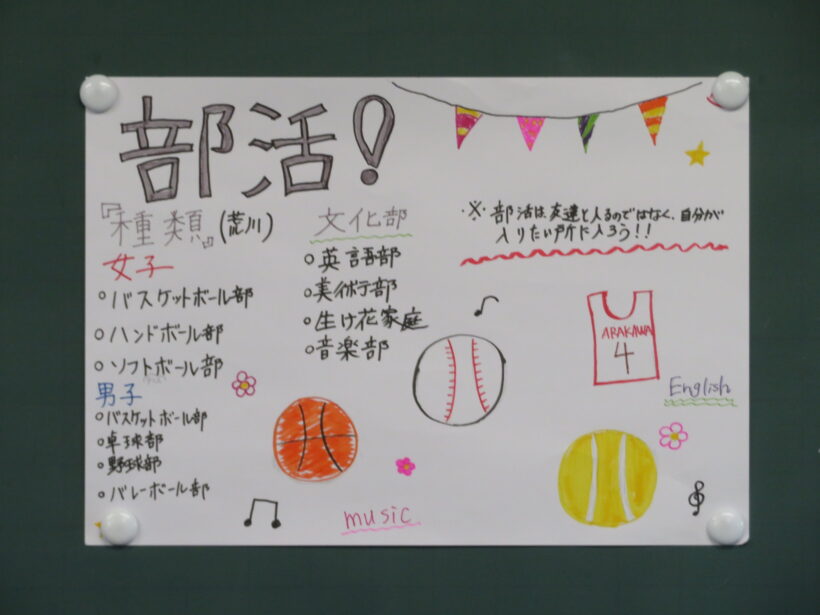 部活!
『種類』(荒川)
女子
○バスケットボール部
○ハンドボール部
○ソフトボール部
男子
○バスケットボール部
○卓球部
○野球部
○バレーボール部
文化部
○英語部
○美術部
○生け花家庭
○音楽部
※部活は友達と入るのではなく、自分が
入りたい所に入ろう!!
ARAKAWA
4
English
music